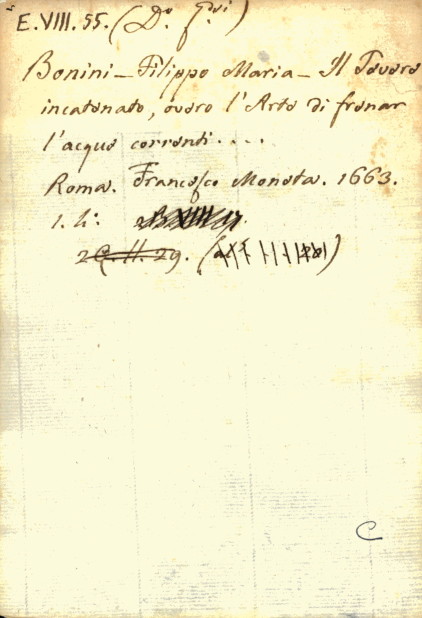 E.VIII.55. (D.º )
Bonini - Filippo Maria - Il Tevere
incatenato, overo l'Arte di frenar
l'acque correnti....
Roma. Francesco Moneta. 1663.
1. 4:
C